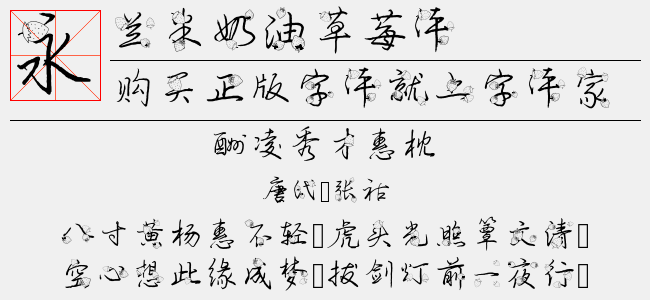 永
兰米奶油草莓体
购买正版字体就上字体家
酬凌秀才惠枕
唐代□张祜
八寸黄杨惠不轻□虎头光照簟文清□
空心想此缘成梦□拔剑灯前一夜行□